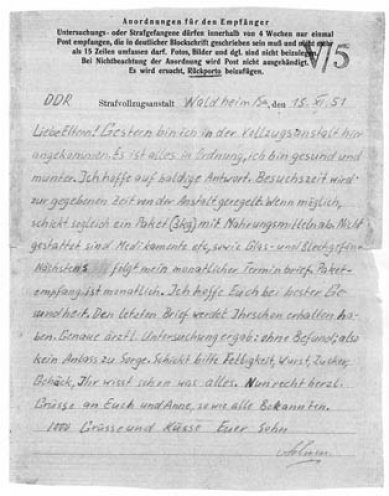 Anordnungen für den Empfänger
Untersuchungs- oder Strafgefangene dürfen innerhalb von 4 Wochen nur einmal
Post empfangen, die in deutscher Blockschrift geschrieben sein muß und nicht mehr
als 15 Zeilen umfassen darf. Fotos, Bilder und dgl. sind nicht beizulegen.
Bei Nichtbeachtung der Anordnung wird Post nicht ausgehändigt.
Es wird ersucht, Rückporto beizufügen.
V/5
DDR Strafvollzugsanstalt Waldheim /Sa, den 15. XI. 51
Liebe Eltern! Gestern bin ich in der Vollzugsanstalt hier
angekommen. Es ist alles in Ordnung, ich bin gesund und
munter. Ich hoffe auf baldige Antwort. Besuchszeit wird
zur gegebenen Zeit von der Anstalt geregelt. Wenn möglich,
schickt sogleich ein Paket (3kg) mit Nahrungsmitteln ab. Nicht
gestattet sind Medikamente etc, sowie Glas- und Blechgefäße
Nächstens folgt mein monatlicher Terminbrief. Paket-
empfang ist monatlich. Ich hoffe Euch bei bester Ge
sundheit. Den letzten Brief werdet Ihr schon erhalten ha-
ben. Genaue ärztl. Untersuchung ergab: ohne Befund; also
kein Anlass zu Sorge. Schickt bitte Fettigkeit, Wurst, Zucker,
Gebäck, Ihr wisst schon was alles. Nun recht herzl.
Grüsse an Euch und Anne, sowie alle Bekannten.
1000 Grüsse und Küsse Euer Sohn